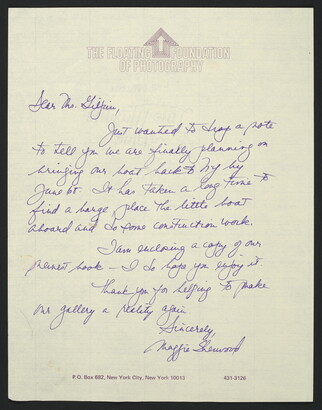 THE FLOATING FOUNDATION
OF PHOTOGRAPHY
Dear Mrs. Gilpin,
Just wanted to drop a note
to tell you we are finally planning on
bringing our boat back to NY by
June 1st. It has taken a long time to
find a barge, place the little boat
aboard and do some construction work.
I am enclosing a copy of our
newest book - I do hope you enjoy it
Thank you for helping to make
our gallery a reality again
Sincerely,
Maggie Sherwood
P.O. Box 682, New York City, New York 10013 431-3126